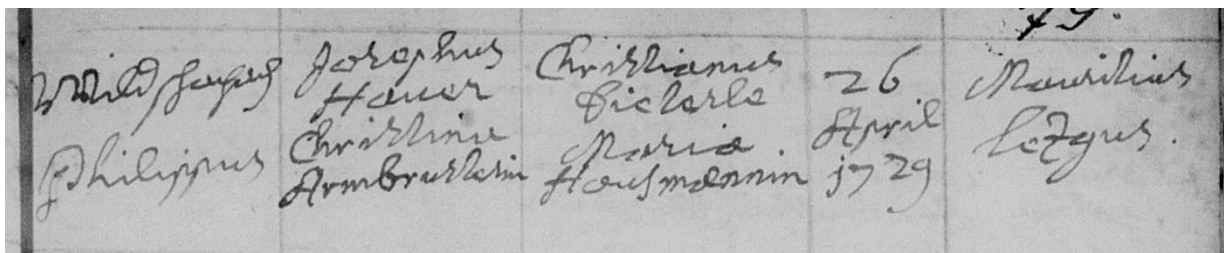 79.
Wildschapach
Philippus
Josephus
Haver
Christina
Armbrusterin
Christianus
Dieterle
Maria
Hausmannin
26
April
1729
Mauritius
letzgus.